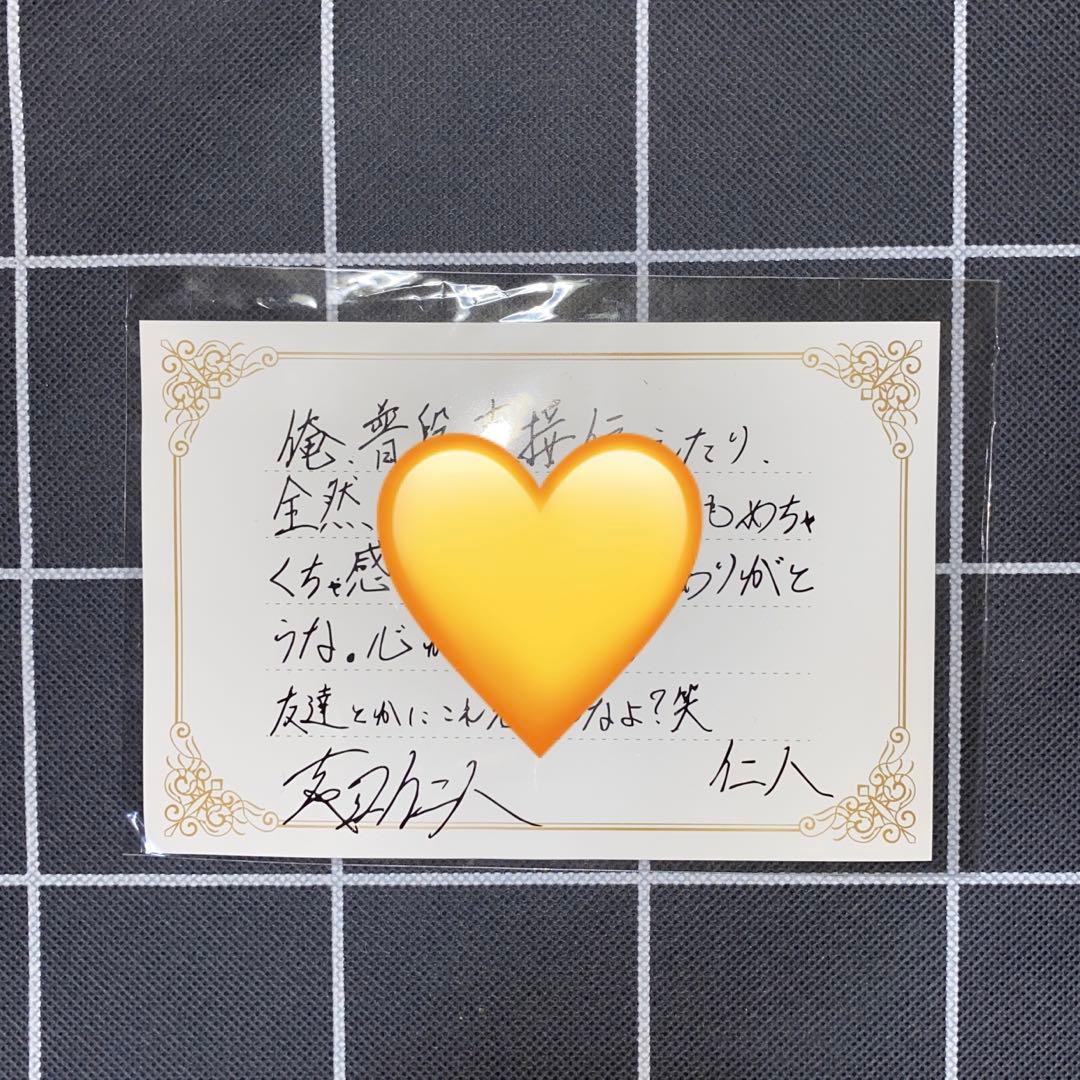 俺、普段 直接伝えたり、
全然、 もめちゃ
くちゃ感 ありがと
うな。心か
友達とかにこれ なよ?笑
仁人
吉田仁人